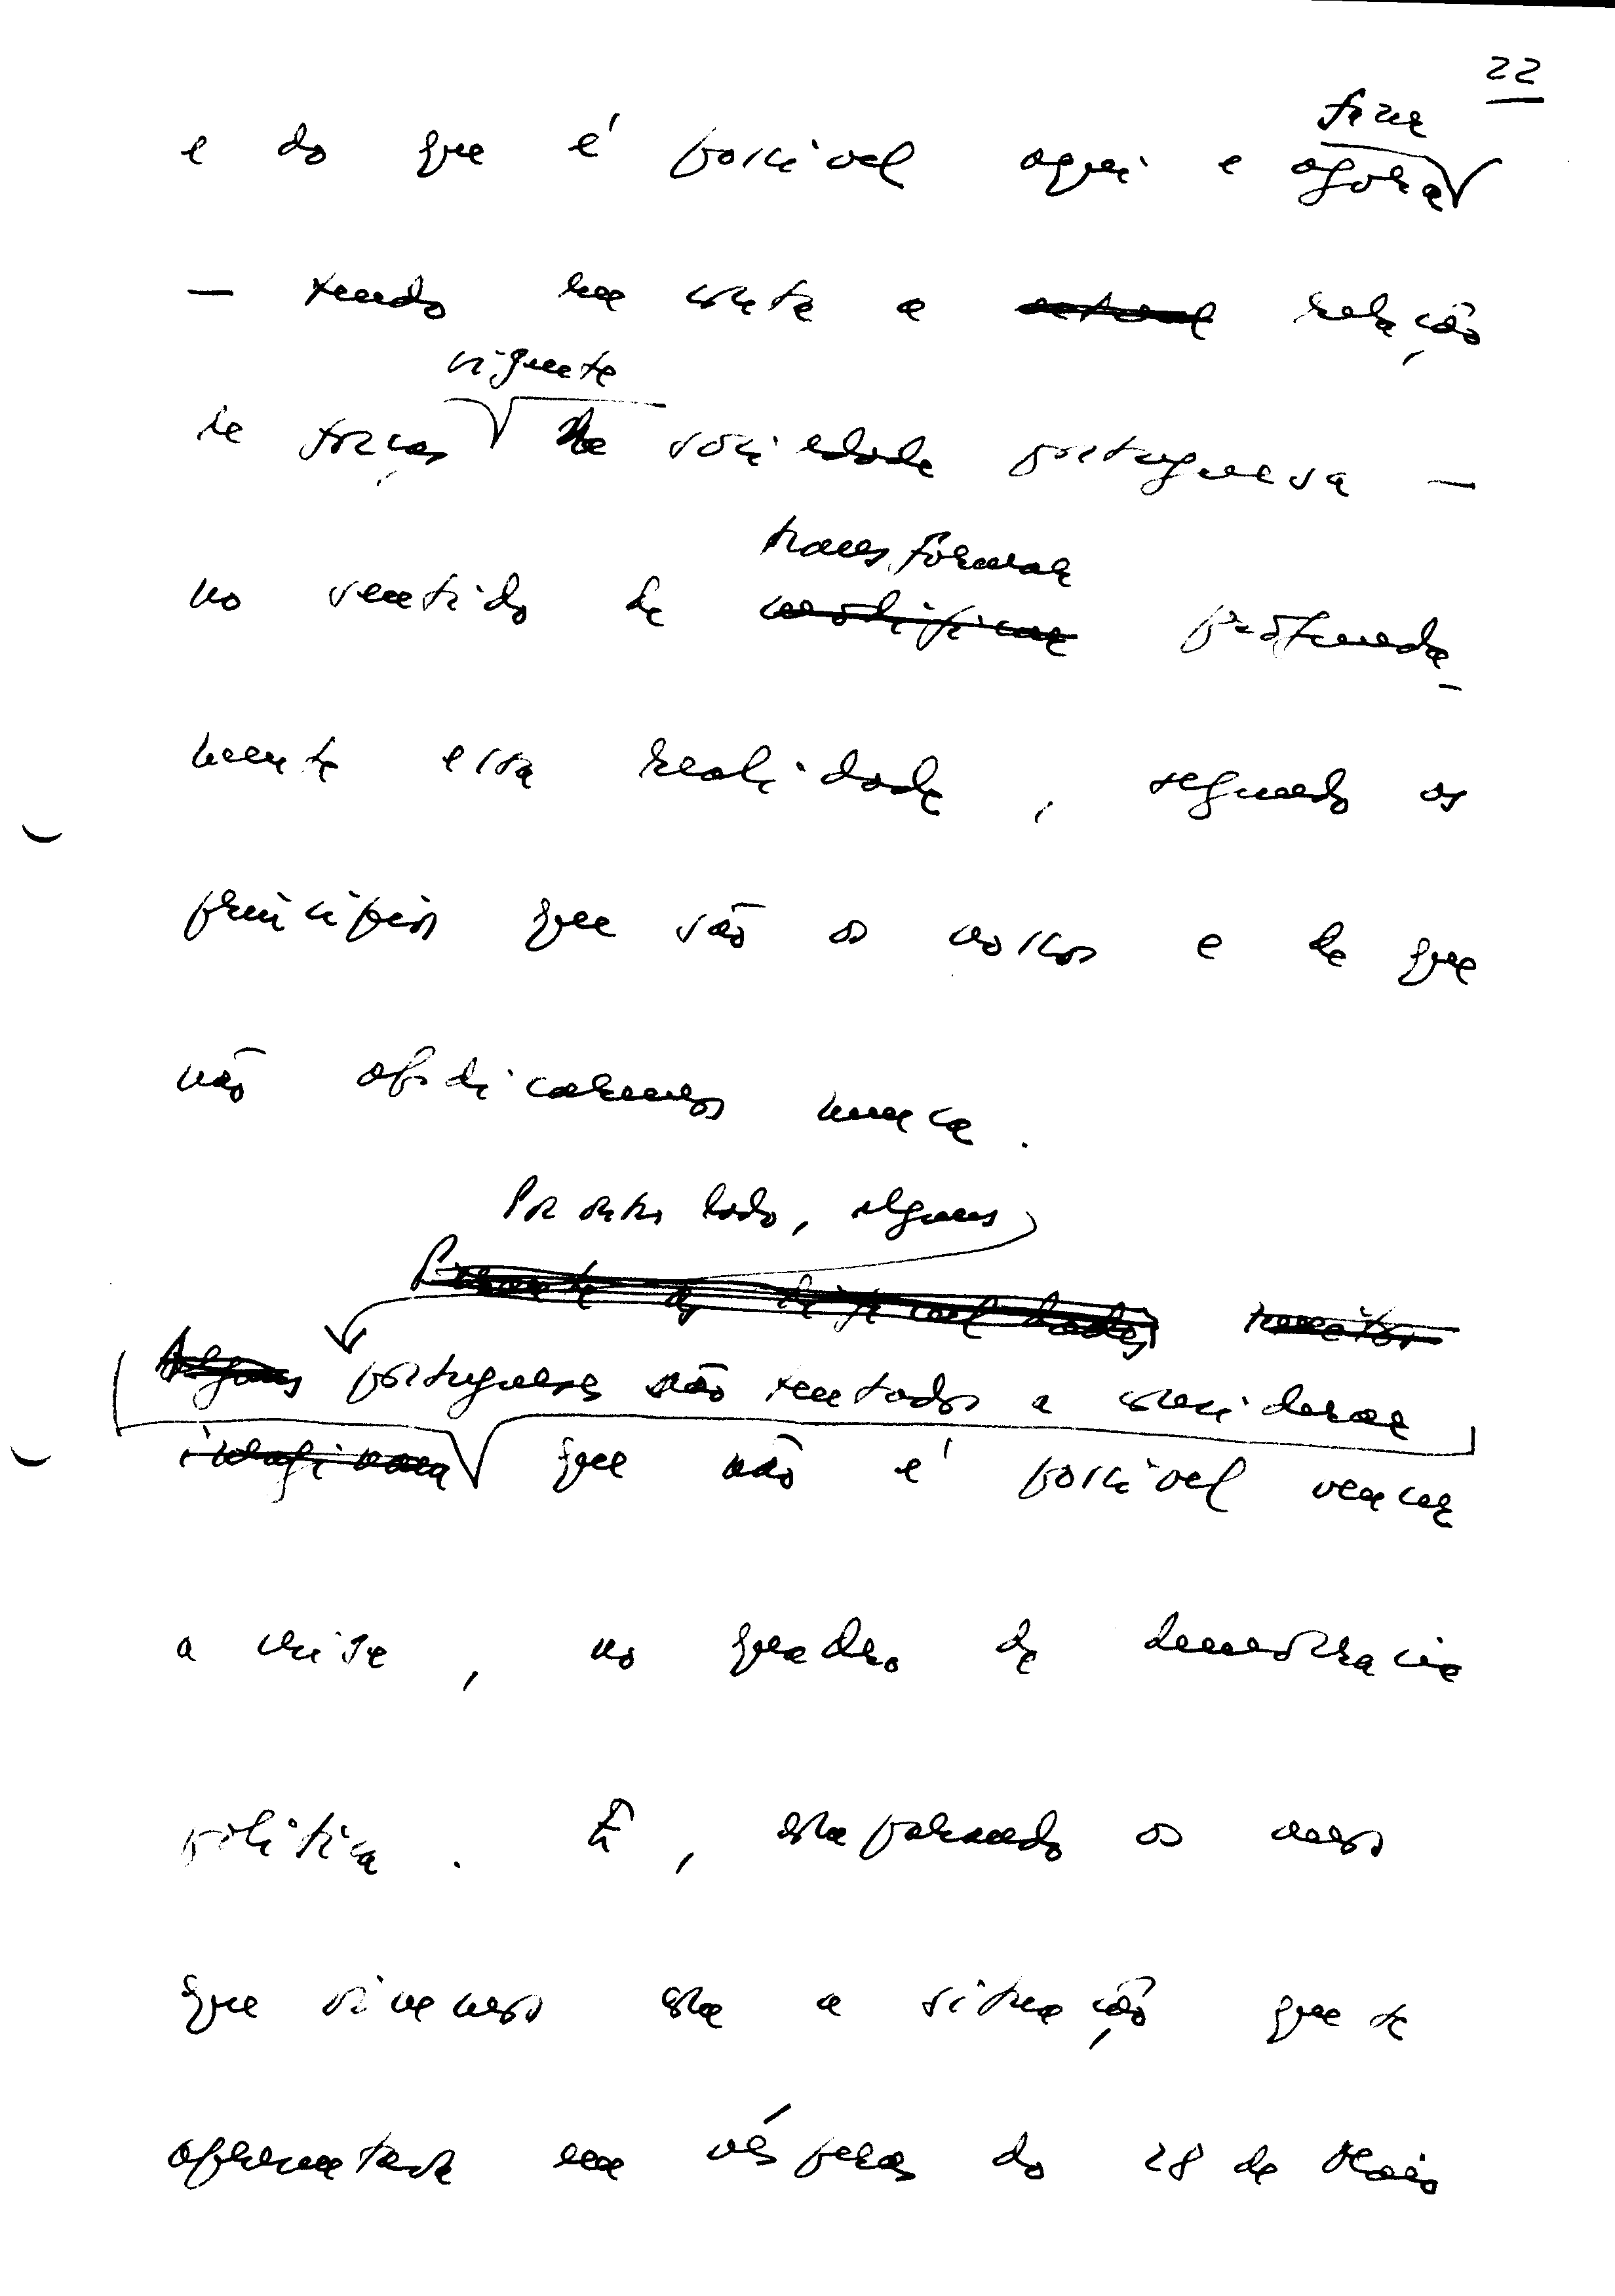 22
fazer
e do que é possível aqui e agora
— tendo em conta a actual relação
vigente
de forças na sociedade portuguesa —
transformar
no sentido de modificar profunda-
mente essa realidade, segundo os
princípios que são os nossos e de que
não abdicaremos nunca.
Por outro lado, alguns
Perante as dificuldades,
Alguns portugueses são tentados a considerar
imaginar que não é possível vencer
a crise, no quadro da democracia
política. E, comparando os anos
que vivemos com a situação que se
apresentava em vésperas do 28 de Maio